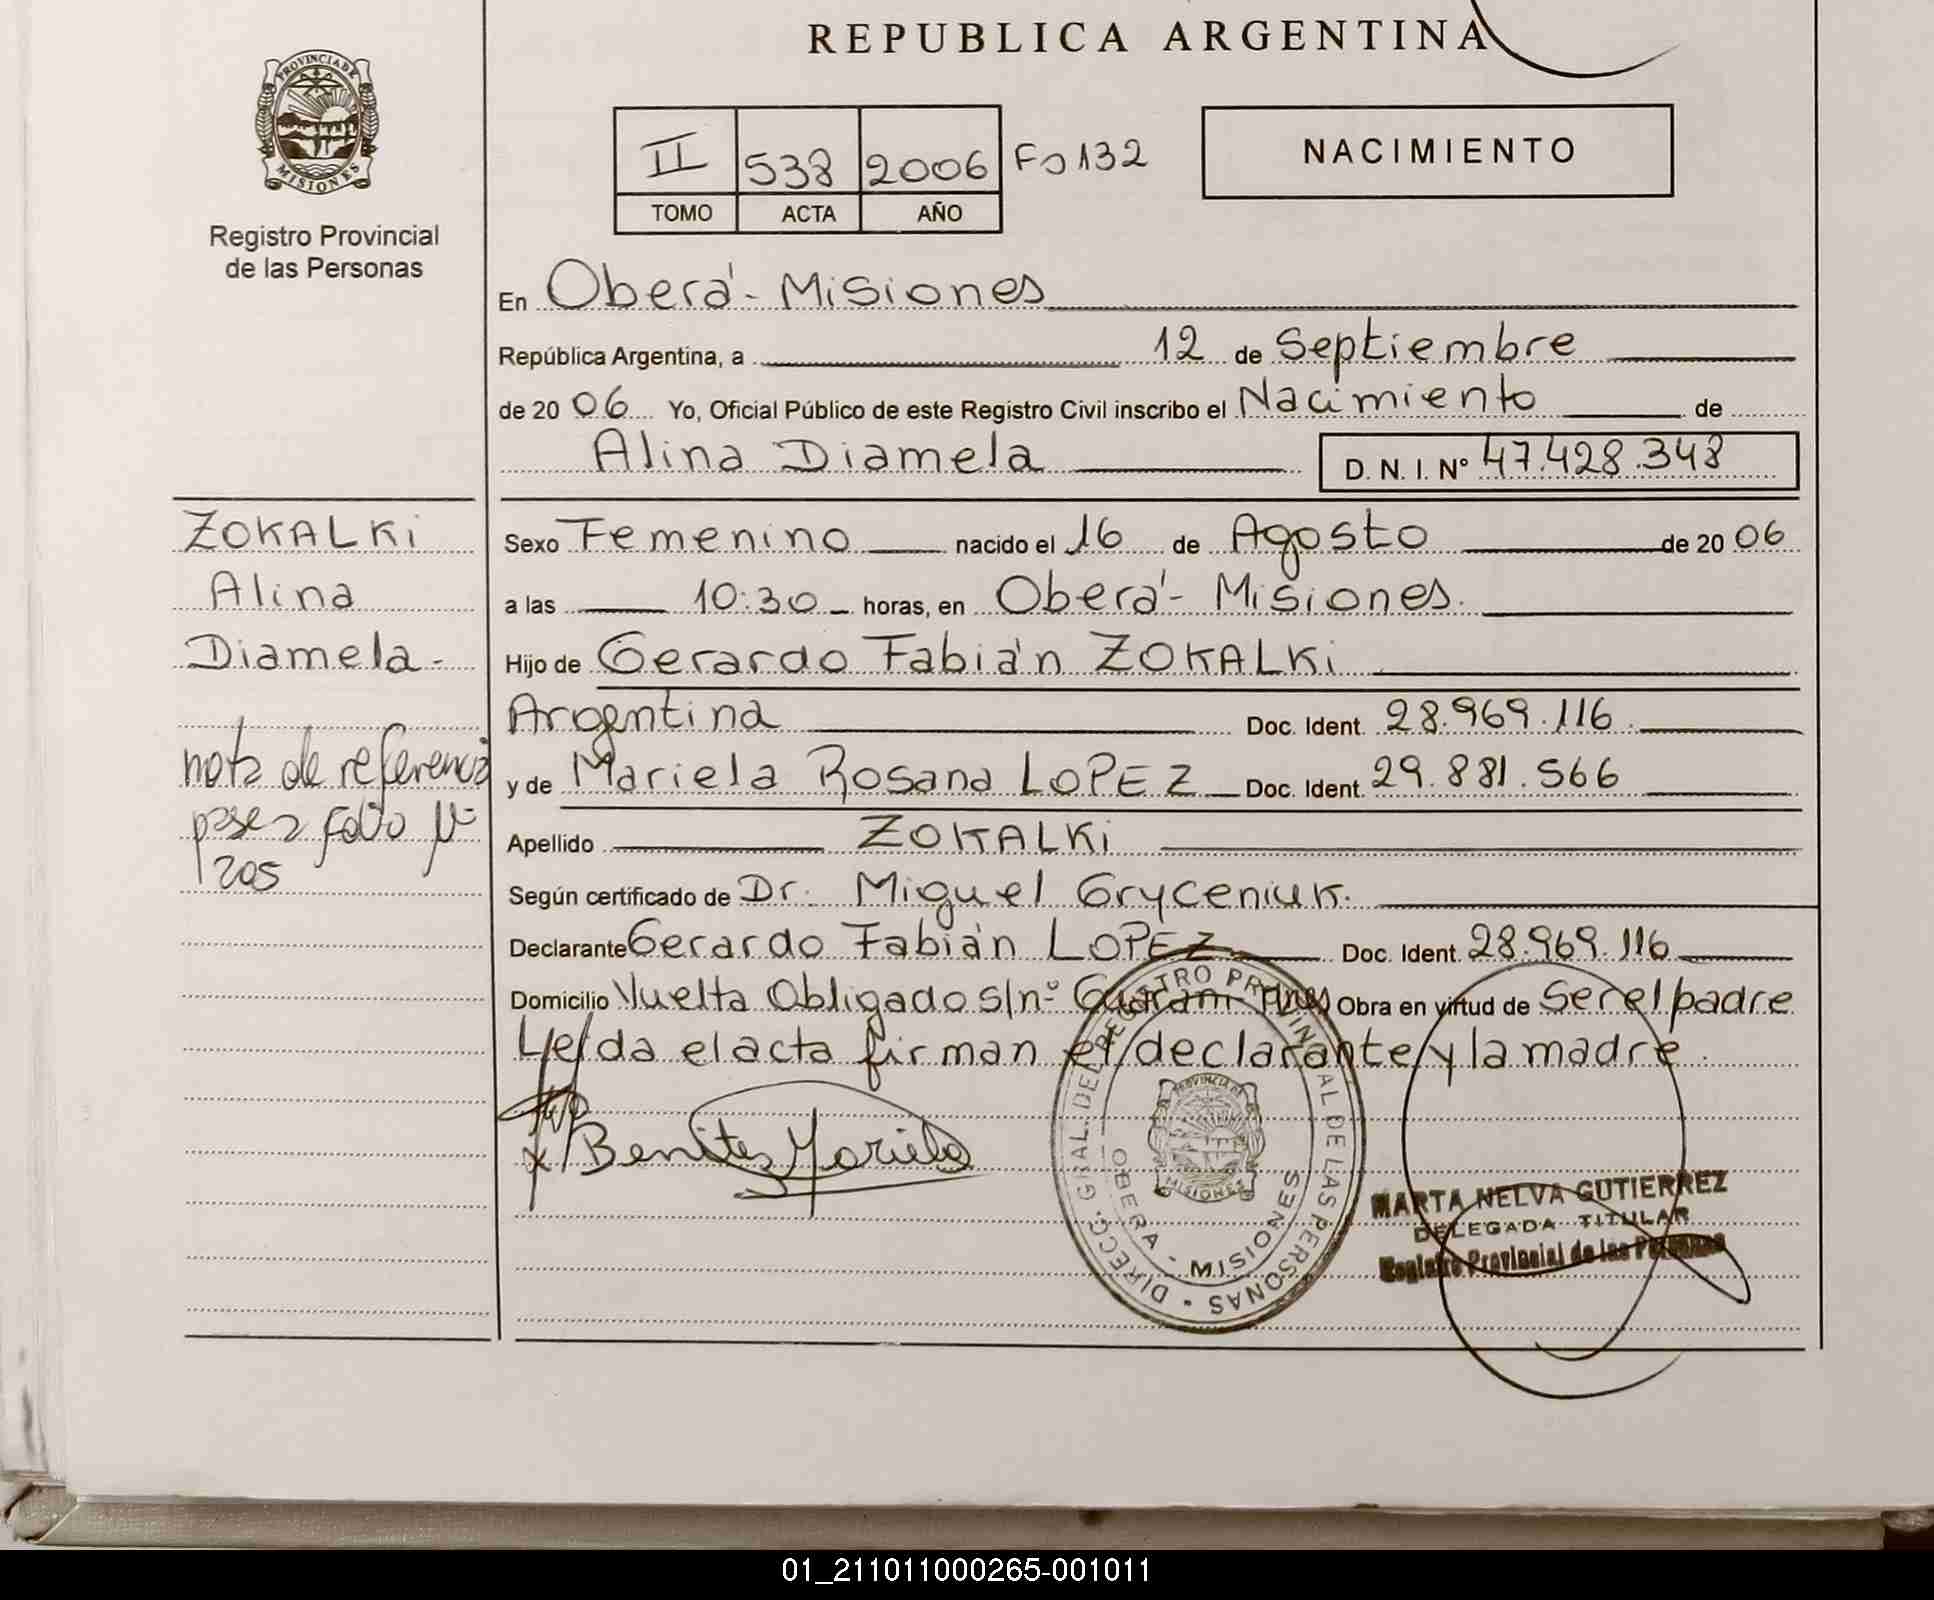 REPUBLICA ARGENTINA
PROVINCIA DE
MISIONES
Registro Provincial
de las Personas
II 538 2006 Fo 132
TOMO ACTA AÑO
NACIMIENTO
En Oberá - Misiones
República Argentina, a 12 de Septiembre
de 20 06 Yo, Oficial Público de este Registro Civil inscribo el Nacimiento de
Alina Diamela D. N. I. N° 47.428.348
ZOKALKi
Alina
Diamela -
nota de referencia
pase a folio Nº
205
Sexo Femenino nacido el 16 de Agosto de 20 06
a las 10:30 horas, en Oberá - Misiones.
Hijo de Gerardo Fabián ZOKALKi
Argentina Doc. Ident. 28.969.116.
y de Mariela Rosana LOPEZ Doc. Ident. 29.881.566
Apellido ZOKALKi
Según certificado de Dr. Miguel Gryceniuk.
Declarante Gerardo Fabián LOPEZ Doc. Ident. 28.969.116
Domicilio Vuelta Obligado s/nº Guaraní Mnes Obra en virtud de Ser el padre
Leída el acta firman el declarante y la madre.
Benitez Mariela
DIRECC. GRAL. DEL REGISTRO PROVINCIAL DE LAS PERSONAS
OBERA - MISIONES
PROVINCIA DE
MISIONES
MARTA NELVA GUTIERREZ
DELEGADA TITULAR
Registro Provincial de las Personas
01_211011000265-001011